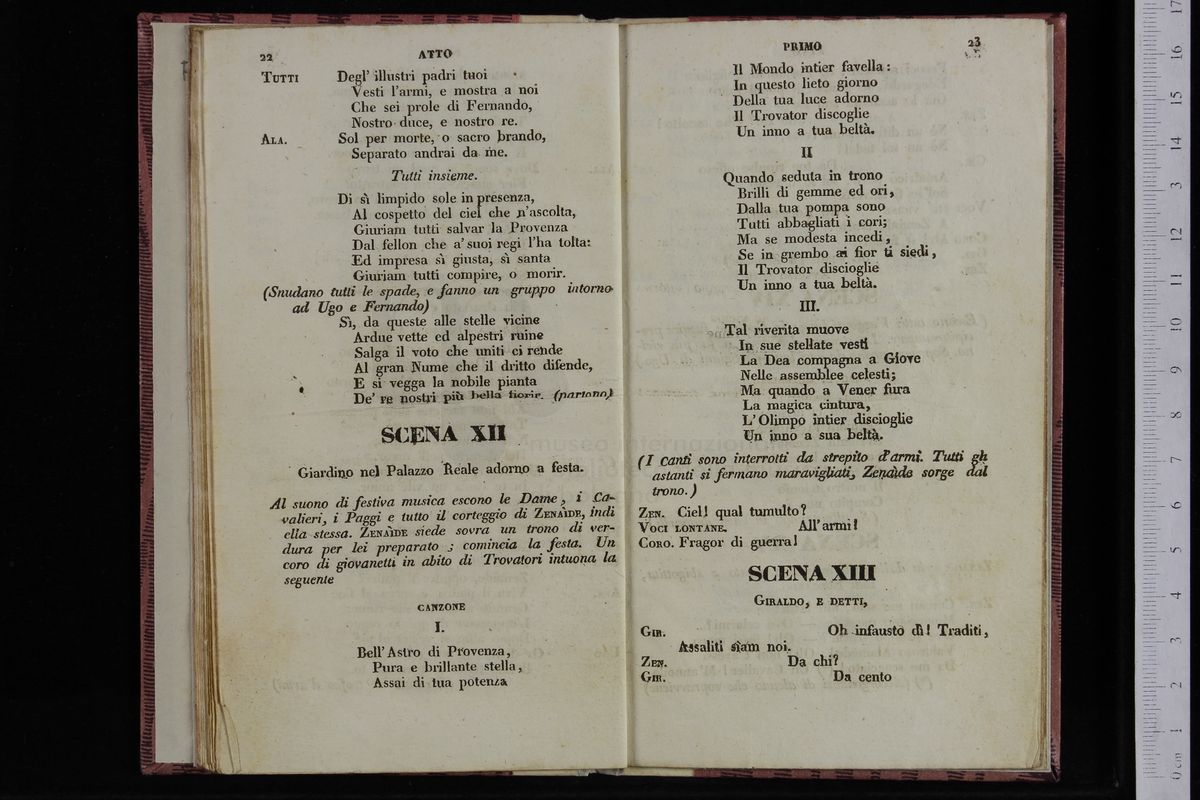 22 ATTO
TUTTI Degl' illustri padri tuoi
Vesti l'armi, e mostra a noi
Che sei prole di Fernando,
Nostro duce, e nostro re.
ALA. Sol per morte, o sacro brando,
Separato andrai da me.
Tutti insieme.
Di sì limpido sole in presenza,
Al cospetto del ciel che n'ascolta,
Giuriam tutti salvar la Provenza
Dal fellon che a' suoi regi l'ha tolta:
Ed impresa sì giusta, sì santa
Giuriam tutti compire, o morir.
(Snudano tutti le spade, e fanno un gruppo intorno
ad Ugo e Fernando)
Sì, da queste alle stelle vicine
Ardue vette ed alpestri ruine
Salga il voto che uniti ci rende
Al gran Nume che il dritto difende,
E si vegga la nobile pianta
De' re nostri più bella fiorir. (partono)
SCENA XII
Giardino nel Palazzo Reale adorno a festa.
Al suono di festiva musica escono le Dame, i Ca-
valieri, i Paggi e tutto il corteggio di ZENAIDE, indi
ella stessa. ZENAIDE siede sovra un trono di ver-
dura per lei preparato ; comincia la festa. Un
coro di giovanetti in abito di Trovatori intuona la
seguente
CANZONE
I.
Bell' Astro di Provenza,
Pura e brillante stella,
Assai di tua potenza
PRIMO 23
Il Mondo intier favella:
In questo lieto giorno
Della tua luce adorno
Il Trovator discoglie
Un inno a tua beltà.
II
Quando seduta in trono
Brilli di gemme ed ori,
Dalla tua pompa sono
Tutti abbagliati i cori;
Ma se modesta incedi,
Se in grembo ai fior ti siedi,
Il Trovator discioglie
Un inno a tua beltà.
III.
Tal riverita muove
In sue stellate vesti
La Dea compagna a Giove
Nelle assemblee celesti;
Ma quando a Vener fura
La magica cintura,
L'Olimpo intier discioglie
Un inno a sua beltà.
(I Canti sono interrotti da strepito d'armi. Tutti gli
astanti si fermano maravigliati, Zenaide sorge dal
trono.)
ZEN. Ciel! qual tumulto?
VOCI LONTANE. All' armi!
CORO. Fragor di guerra!
SCENA XIII
GIRALDO, E DETTI,
GIR. Oh infausto dì! Traditi,
Assaliti siam noi.
ZEN. Da chi?
GIR. Da cento